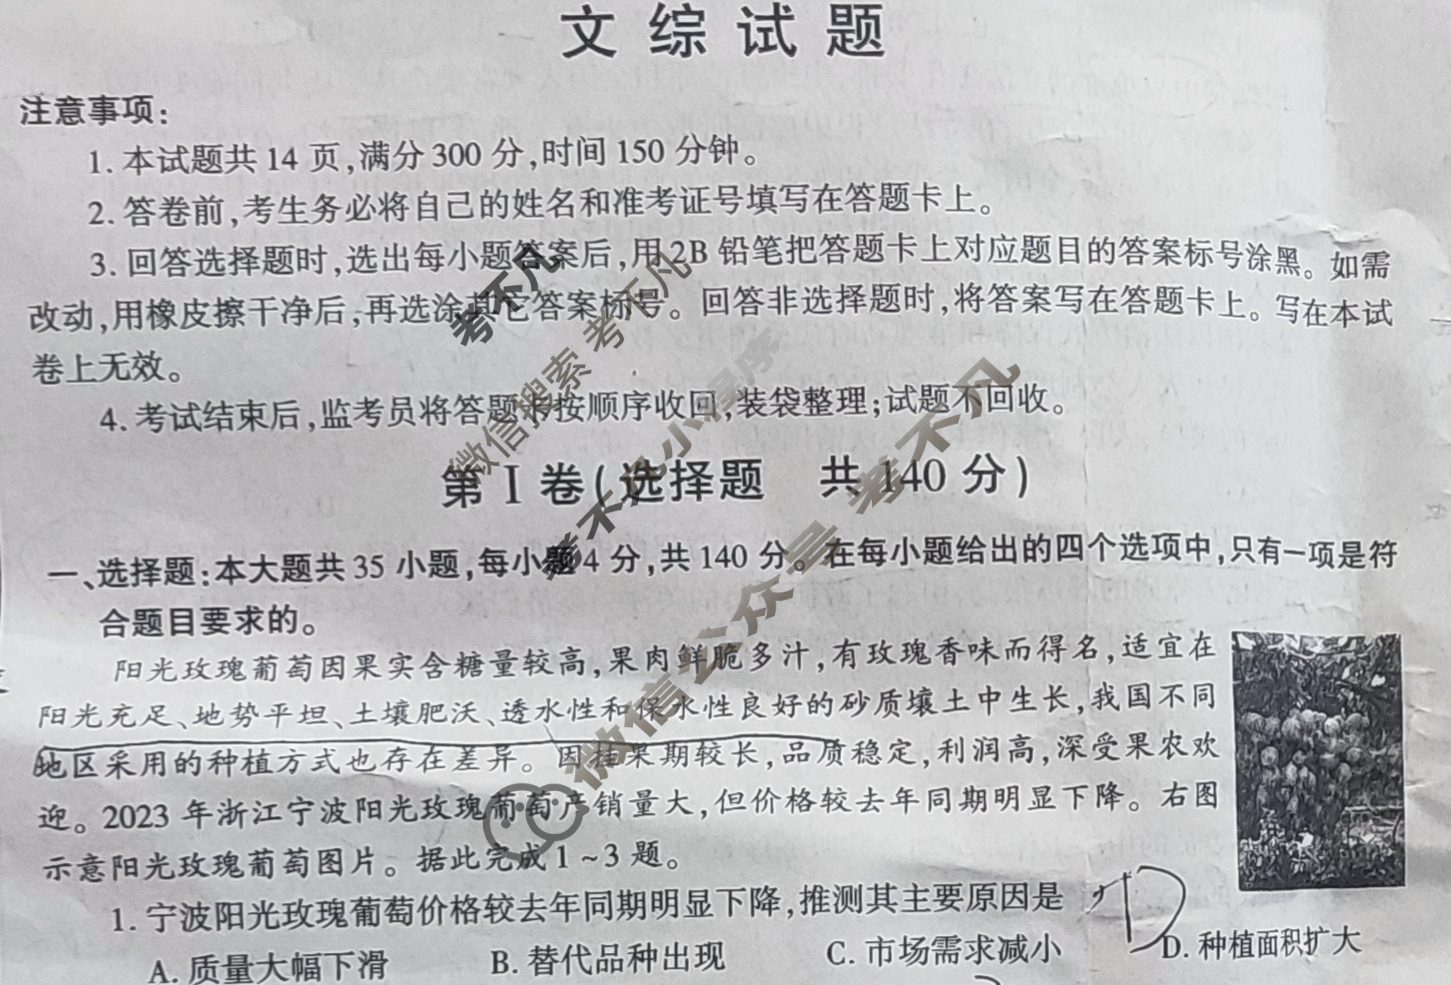 文综试题
注意事项：
1. 本试题共 14 页，满分 300 分，时间 150 分钟。
2. 答卷前，考生务必将自己的姓名和准考证号填写在答题卡上。
3. 回答选择题时，选出每小题答案后，用 2B 铅笔把答题卡上对应题目的答案标号涂黑。如需
改动，用橡皮擦干净后，再选涂其它答案标号。回答非选择题时，将答案写在答题卡上。写在本试
卷上无效。
4. 考试结束后，监考员将答题卡按顺序收回，装袋整理；试题不回收。
第 I 卷（选择题 共 140 分）
一、选择题：本大题共 35 小题，每小题 4 分，共 140 分。在每小题给出的四个选项中，只有一项是符
合题目要求的。
阳光玫瑰葡萄因果实含糖量较高，果肉鲜脆多汁，有玫瑰香味而得名，适宜在
阳光充足、地势平坦、土壤肥沃、透水性和保水性良好的砂质壤土中生长，我国不同
地区采用的种植方式也存在差异。因挂果期较长，品质稳定，利润高，深受果农欢
迎。2023 年浙江宁波阳光玫瑰葡萄产销量大，但价格较去年同期明显下降。右图
示意阳光玫瑰葡萄图片。据此完成 1～3 题。
1. 宁波阳光玫瑰葡萄价格较去年同期明显下降，推测其主要原因是
D
A. 质量大幅下滑 B. 替代品种出现 C. 市场需求减小 D. 种植面积扩大
考不凡
微信搜索 考不凡
考不凡小程序
微信公众号 考不凡